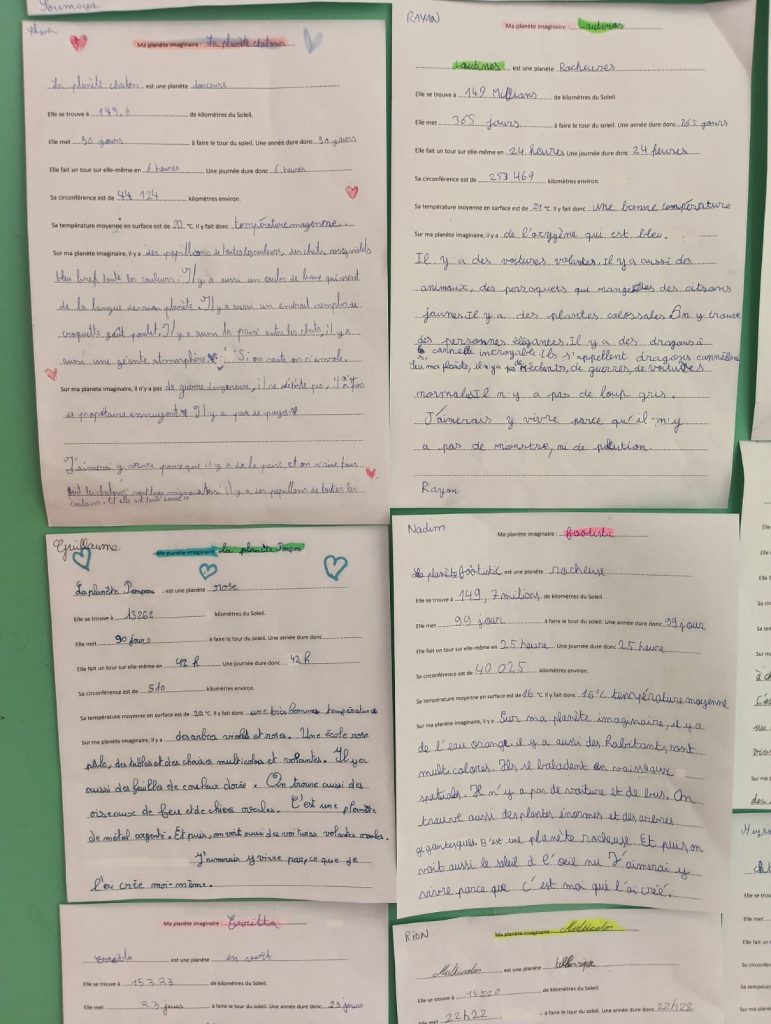 Soumaya
Ma planète imaginaire : La planète chaton
La planète chaton est une planète douceuse
Elle se trouve à 149,6 de kilomètres du Soleil.
Elle met 90 jours à faire le tour du soleil. Une année dure donc 90 jours
Elle fait un tour sur elle-même en 6 heures Une journée dure donc 6 heures
Sa circonférence est de 44 124 kilomètres environ.
Sa température moyenne en surface est de 20 °C. Il y fait donc température moyenne.
Sur ma planète imaginaire, il y a des papillons de toutes les couleurs, des chats roses, violets
bleu bref toute les couleurs. Il y a aussi un
de la langue de mon planète. Il y a aussi un endroit remplis de
croquette goût poulet. Il y a aussi la paix entre les chats, il y a
aussi une géante atmosphère. Si on saute on s'envole.
Sur ma planète imaginaire, il n'y a pas de guerre dangereuse, il se déteste pas, il n'y a pas
de propriétaire ennuyant. Il y a pas de pays.
J'aimerai y vivre parce que il y a de la paix, et on s'aime tous
il y a des papillons de toutes les
couleurs. Et elle est toute
RAYAN
Ma planète imaginaire : Lautinos
Lautinos est une planète Rocheuses
Elle se trouve à 149 Millians de kilomètres du Soleil.
Elle met 365 jours à faire le tour du soleil. Une année dure donc 365 jours
Elle fait un tour sur elle-même en 24 heures Une journée dure donc 24 heures
Sa circonférence est de 253 469 kilomètres environ.
Sa température moyenne en surface est de 21 °C. Il y fait donc une bonne température
Sur ma planète imaginaire, il y a de l'oxygène qui est bleu.
Il y a des voitures volantes. Il y a aussi des
animaux, des perroquets qui mange des citrons
jaunes. Il y a des plantes colossales. On y trouve
des personnes élégantes. Il y a des dragons à
cannelle incroyable Ils s'appellent dragons cannelons
Sur ma planète, il n'y a pas de méchants, de guerres, de voitures
normales. Il n'y a pas de loup gris.
J'aimerais y vivre parce qu'il n'y
a pas de monstre, ni de polution.
Rayan
Guillaume
Ma planète imaginaire : la planète Pompom
La planète Pompom est une planète rose
Elle se trouve à 13262 kilomètres du Soleil.
Elle met 90 jours à faire le tour du soleil. Une année dure donc
Elle fait un tour sur elle-même en 42 h Une journée dure donc 42 h
Sa circonférence est de 510 kilomètres environ.
Sa température moyenne en surface est de 20 °C. Il y fait donc une très bonnes température
Sur ma planète imaginaire, il y a des arbres violets et rosa. Une école rose
pâle, des tables et des chaises multicolos et volantes. Il y a
aussi des feuilles de couleur dorée. On trouve aussi des
oiseaux de feu et de chiens ovales. C'est une planète
de métal argenté. Et puis, on voit aussi des voitures volantes ovales.
J'aimerais y vivre parce que je
l'ai crée moi-même.
Nadim
Ma planète imaginaire : footistic
La planète footistic est une planète rocheuse
Elle se trouve à 149,7 milions de kilomètres du Soleil.
Elle met 99 jour à faire le tour du soleil. Une année dure donc 99 jour
Elle fait un tour sur elle-même en 25 heure Une journée dure donc 25 heure
Sa circonférence est de 40 025 kilomètres environ.
Sa température moyenne en surface est de 16 °C. Il y fait donc 16°C température moyenne
Sur ma planète imaginaire, il y a Sur ma planète imaginaire, il y a
de l'eau orange. il y a aussi des habitants, sont
multi colores. Ils se baladent en vaisseaux
spatials. Il n'y a pas de voiture et de bus. On
trouve aussi des plantes énormes et des arbres
gigantesques. C'est une planète rocheuse. Et puis on
voit aussi le soleil à l'oeil nu J'aimerai y
vivre parce que c'est moi qui l'ai créé.
Ma planète imaginaire :
est une planète en
Elle se trouve à 15323 de kilomètres du Soleil.
Elle met 23 jours à faire le tour du soleil. Une année dure donc 23 jours
RION
Ma planète imaginaire : Multicolor
Multicolor est une planète
Elle se trouve à 14520 de kilomètres du Soleil.
Elle met 22h22 à faire le tour du soleil. Une année dure donc 22h22